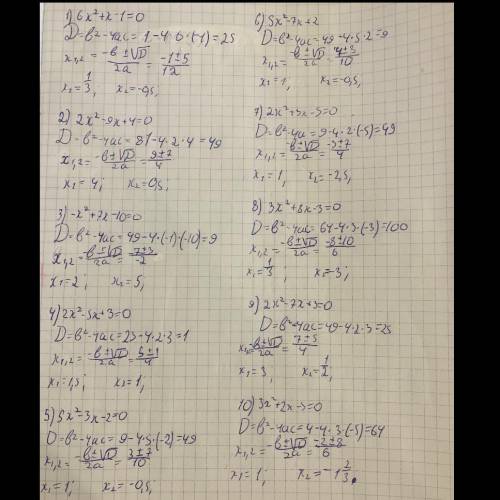 1) 6x²+x-1=0
D=в²-4ас=1-4·6·(-1)=25
x₁,₂=(-в±√D)/2a=(-1±5)/12
x₁=1/3; x₂=-0,5;
2) 2x²-9x+4=0
D=в²-4ас=81-4·2·4=49
x₁,₂=(-в±√D)/2a=(9±7)/4
x₁=4; x₂=0,5;
3) -x²+7x-10=0
D=в²-4ас=49-4·(-1)·(-10)=9
x₁,₂=(-в±√D)/2a=(-7±3)/-2
x₁=2; x₂=5;
4) 2x²-5x+3=0
D=в²-4ас=25-4·2·3=1
x₁,₂=(-в±√D)/2a=(5±1)/4
x₁=1,5; x₂=1;
5) 5x²-3x-2=0
D=в²-4ас=9-4·5·(-2)=49
x₁,₂=(-в±√D)/2a=(3±7)/10
x₁=1; x₂=-0,5;
6) 5x²-7x+2
D=в²-4ас=49-4·5·2=9
x₁,₂=(-в±√D)/2a=(7±3)/10
x₁=1, x₂=-0,5;
7) 2x²+3x-5=0
D=в²-4ас=9-4·2·(-5)=49
x₁,₂=(-в±√D)/2a=(-3±7)/4
x₁=1, x₂=-2,5;
8) 3x²+8x-3=0
D=в²-4ас=64-4·3·(-3)=100
x₁,₂=(-в±√D)/2a=(-8±10)/6
x₁=1/3; x₂=-3;
9) 2x²-7x+3=0
D=в²-4ас=49-4·2·3=25
x₁,₂=(-в±√D)/2a=(7±5)/4
x₁=3, x₂=1/2,
10) 3x²+2x-5=0
D=в²-4ас=4-4·3·(-5)=64
x₁,₂=(-в±√D)/2a=(-2±8)/6
x₁=1; x₂=-1 2/3.